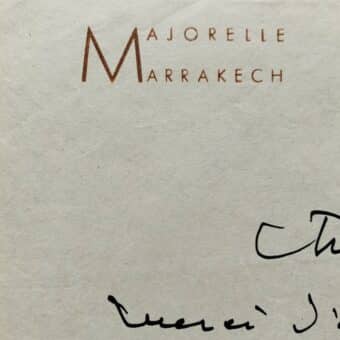 MAJORELLE
MARRAKECH
merci